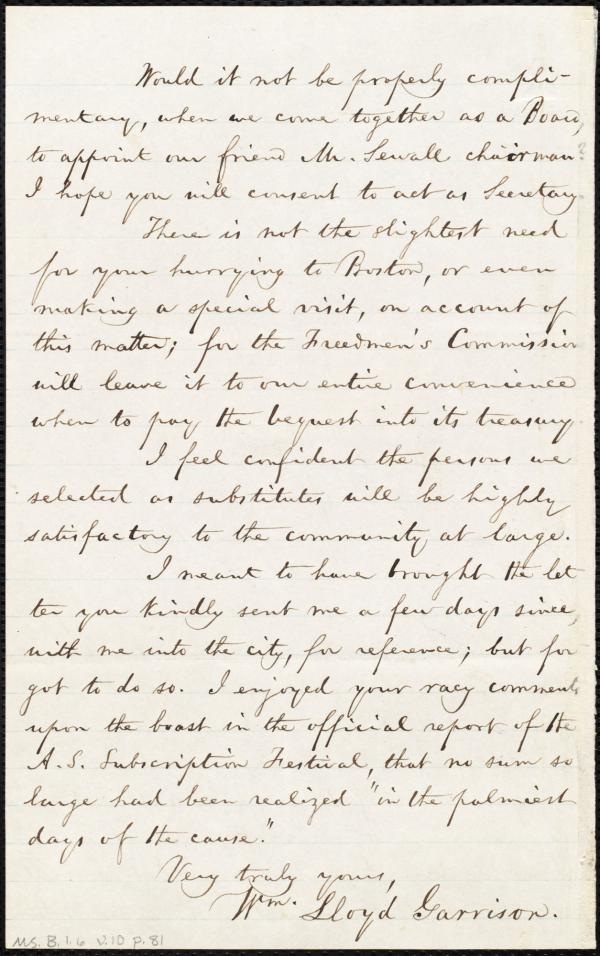 Would it not be properly compli-
mentary, when we come together as a Board,
to appoint our friend Mr. Sewall chairman?
I hope you will consent to act as Secretary.
There is not the slightest need
for your hurrying to Boston, or even
making a special visit, on account of
this matter; for the Freedmen's Commission
will leave it to our entire convenience
when to pay the bequest into its treasury.
I feel confident the persons we
selected as substitutes will be highly
satisfactory to the community at large.
I meant to have brought the let
ter you kindly sent me a few days since,
with me into the city, for reference; but for
got to do so. I enjoyed your racy comments
upon the boast in the official report of the
A. S. Subscription Festival, that no sum so
large had been realized "in the palmiest
days of the cause."
Very truly yours,
Wm. Lloyd Garrison.
MS. B.1.6 v.10 p.81